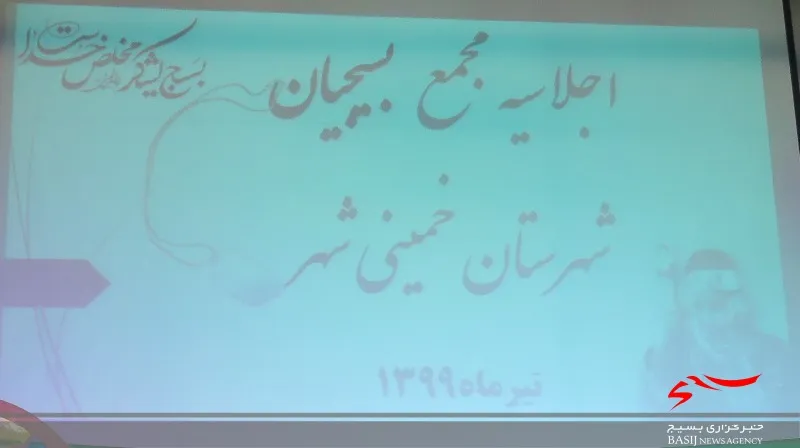 بسیج لشکر مخلص خداست
اجلاسیه مجمع بسیجیان
شهرستان خمینی شهر
تیر ماه ۱۳۹۹
بسیج
خبرگزاری بسیج
BASIJ NEWS AGENCY